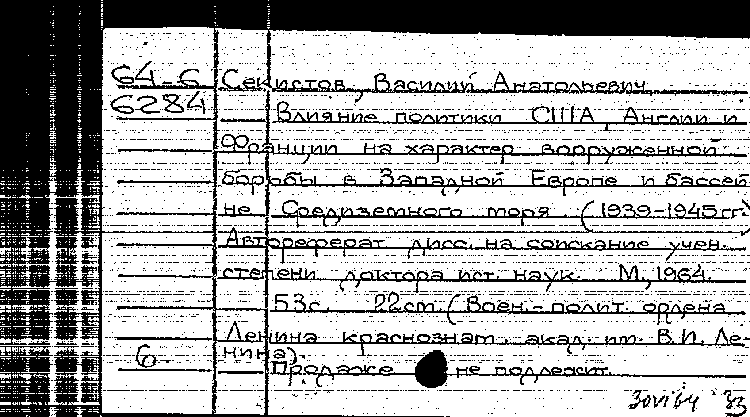 64-6 Секистов, Василий Анатольевич
6284 Влияние политики США, Англии и
Франции на характер вооруженной
борьбы в Западной Европе и бассей
не Средиземного моря (1939-1945гг)
Автореферат дисс. на соискание учен.
степени доктора ист. наук. М., 1964.
53с. 22см. (Воен.-полит. ордена
Ленина краснознам. акад. им. В.И. Ле-
нина).
6. Продаже не подлежит.